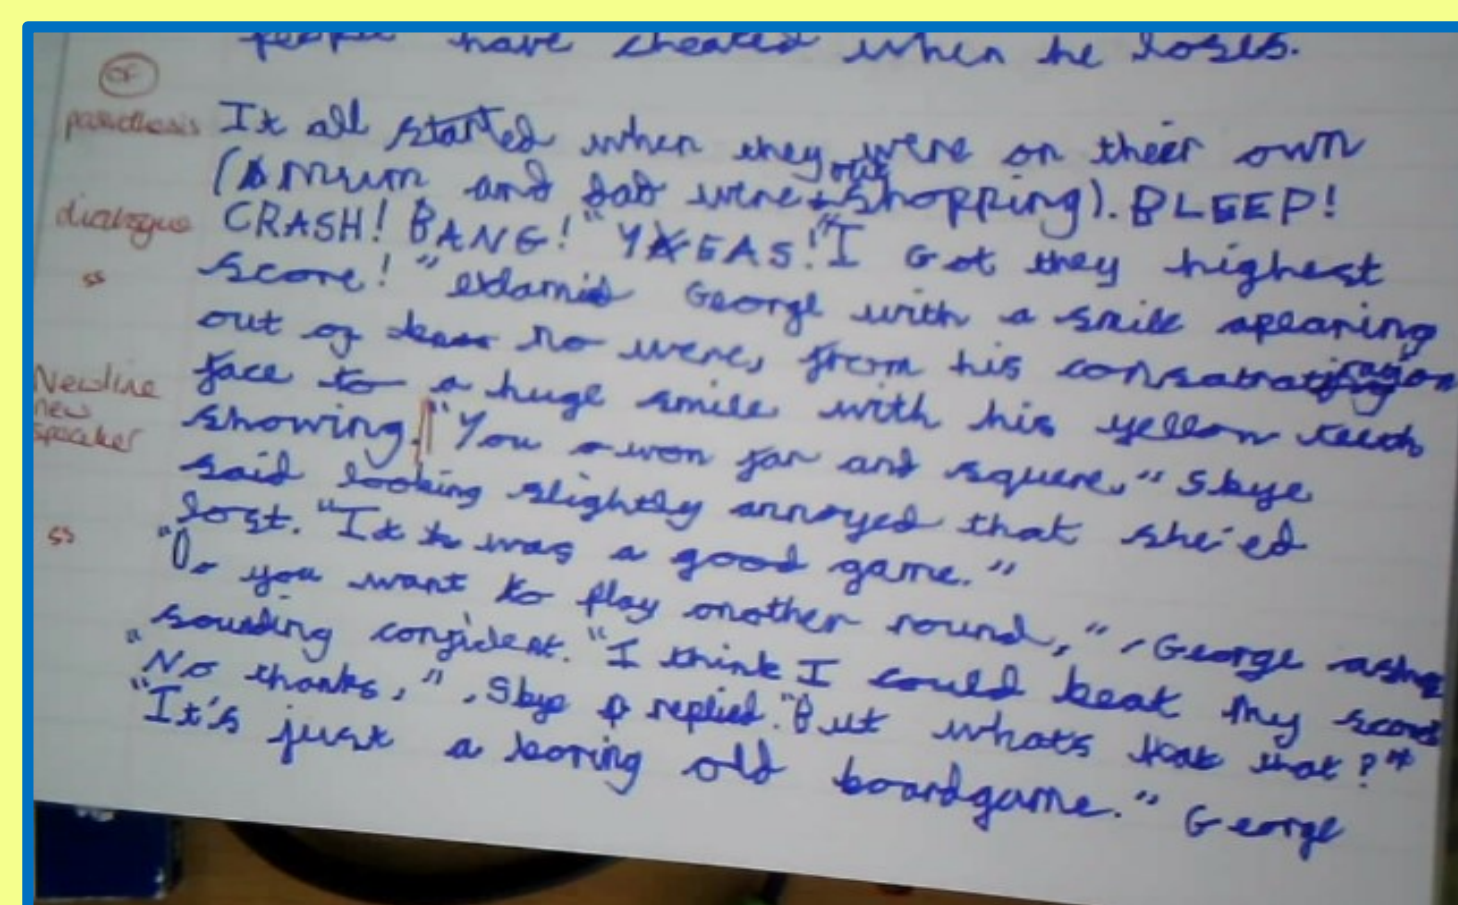 people have cheated when he loses.
OF
parenthesis
It all started when they were on their own
(mum and dad were out shopping). BLEEP!
dialogue
CRASH! BANG! "YEAS! "I Got they highest
ss
score!" exlamid George with a smile apearing
out of no were, from his
Newline
new
speaker
face to a huge smile with his yellow teeth
showing. "You won far and squere," Skye
said looking slightly annoyed that she'ed
ss
lost. "It was a good game."
"Do you want to play another round,", George
sounding confident. "I think I could beat my score
"No thanks,", Skye replied. "But whats that that?"
"It's just a boring old boardgame." George